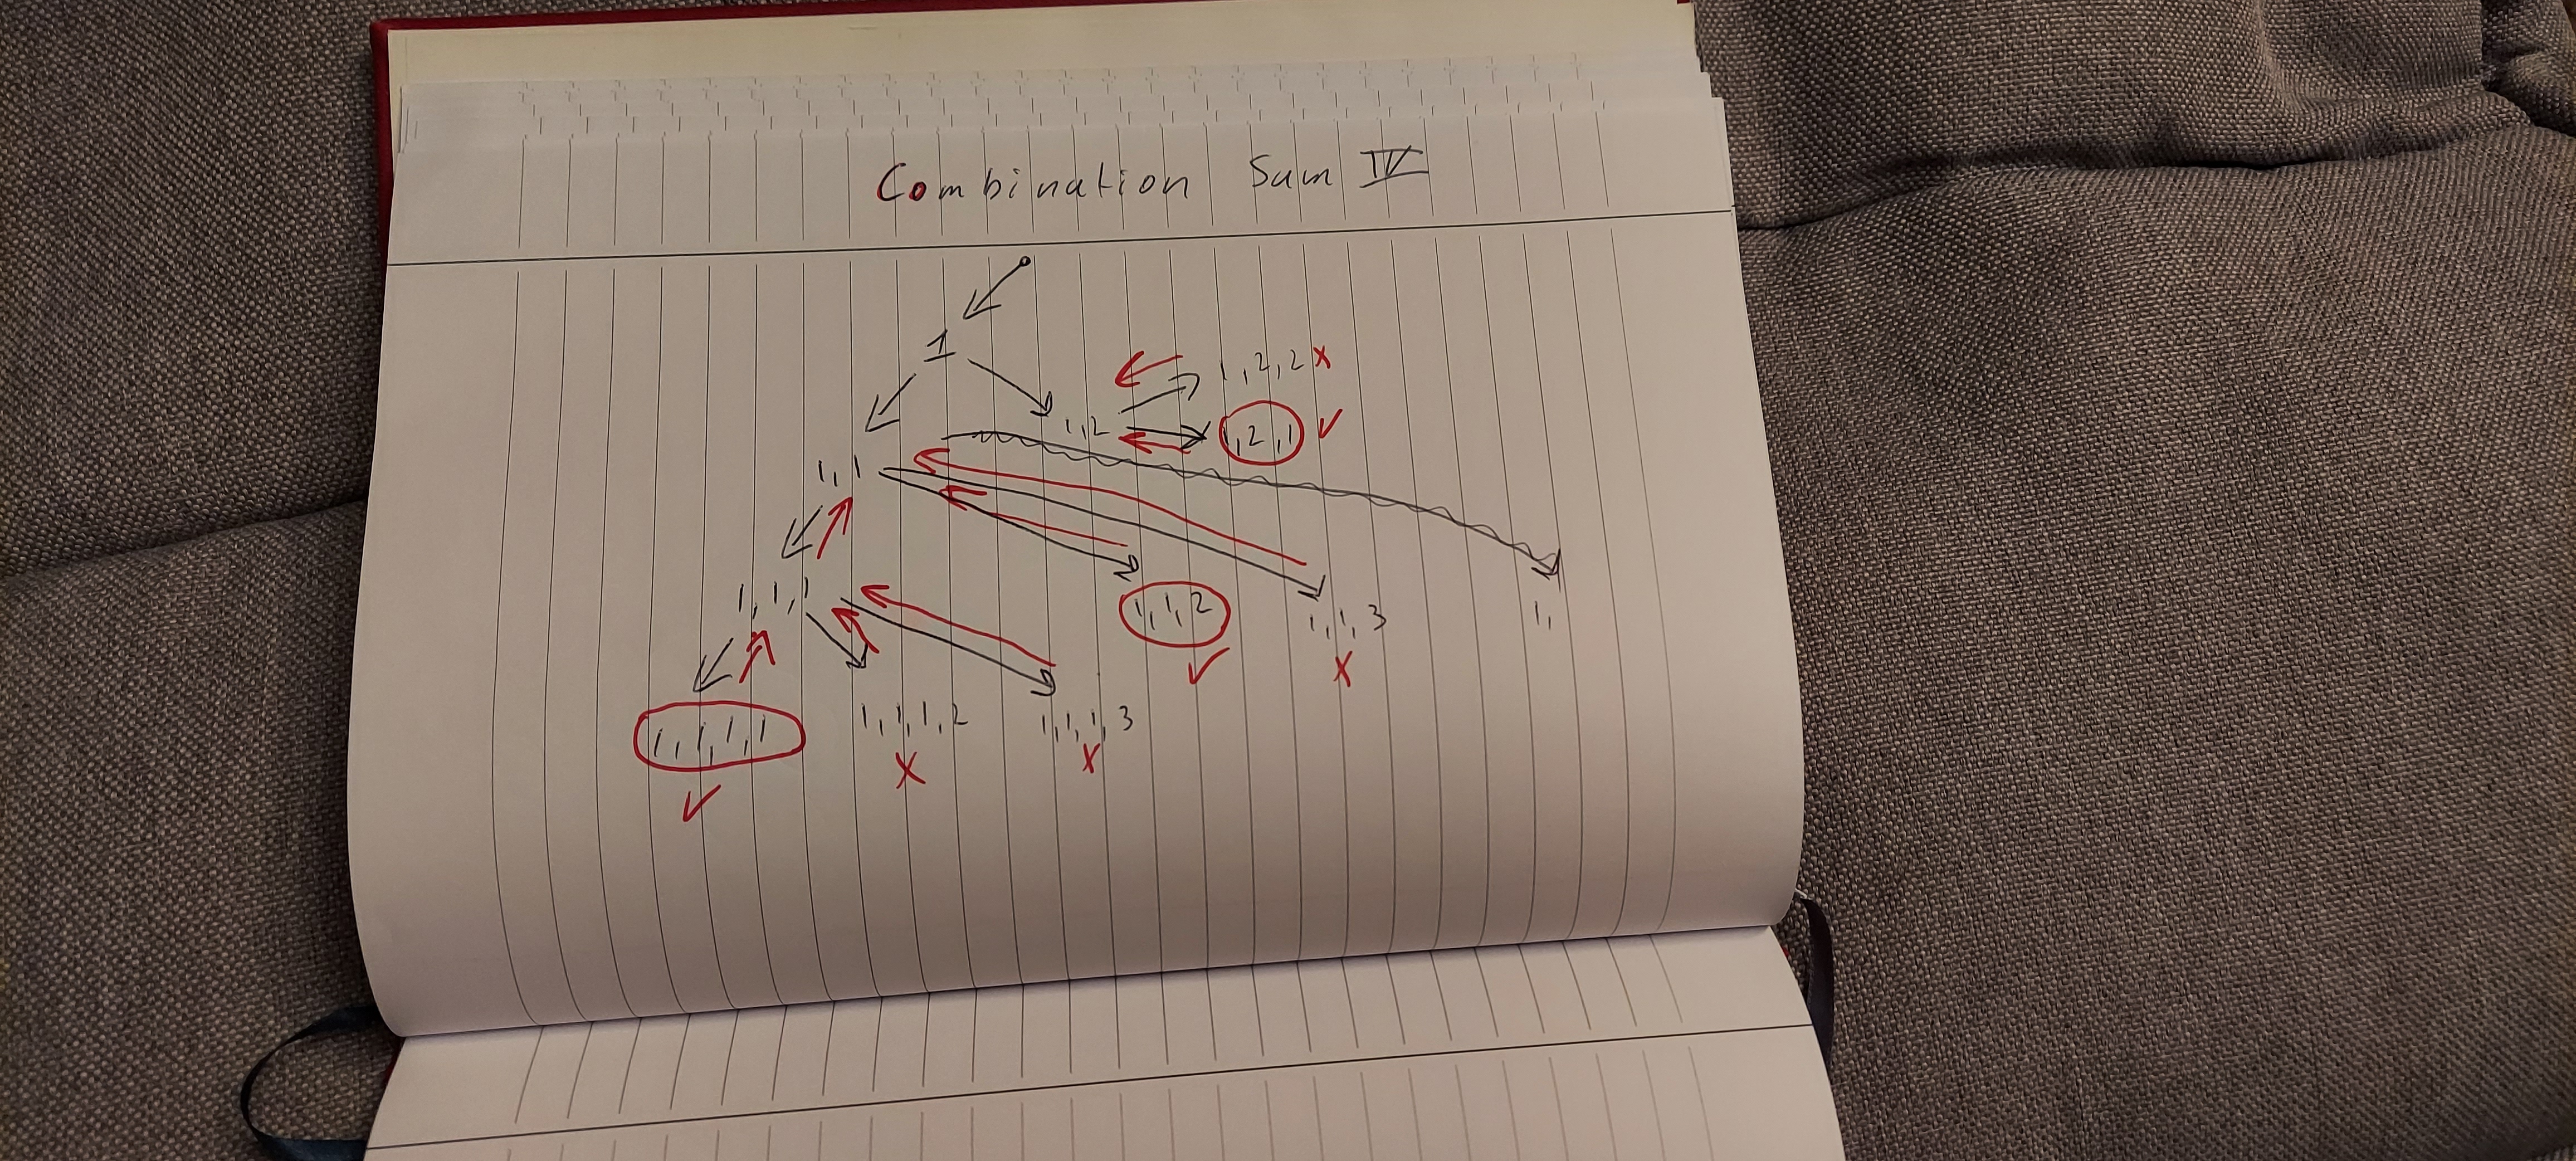 Combination Sum IV
1
1,2,2 x
1,2
1,2,1 ✓
1,1
1,1,1
1,1,2
✓
1,1,3
x
1,
1,1,1,1
✓
1,1,1,2
x
1,1,1,3
x